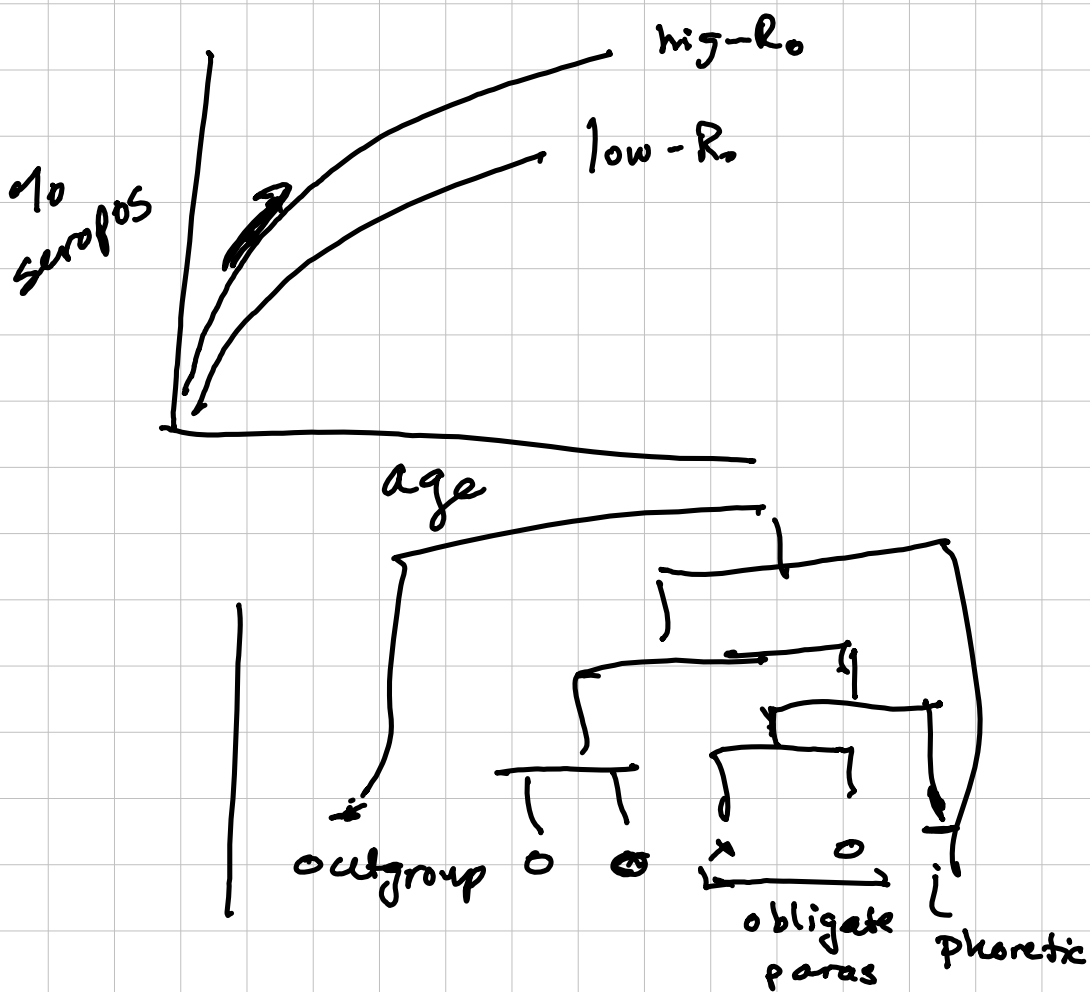 hig-R₀
low-R₀
% seropos
age
outgroup
obligate
paras
phoretic